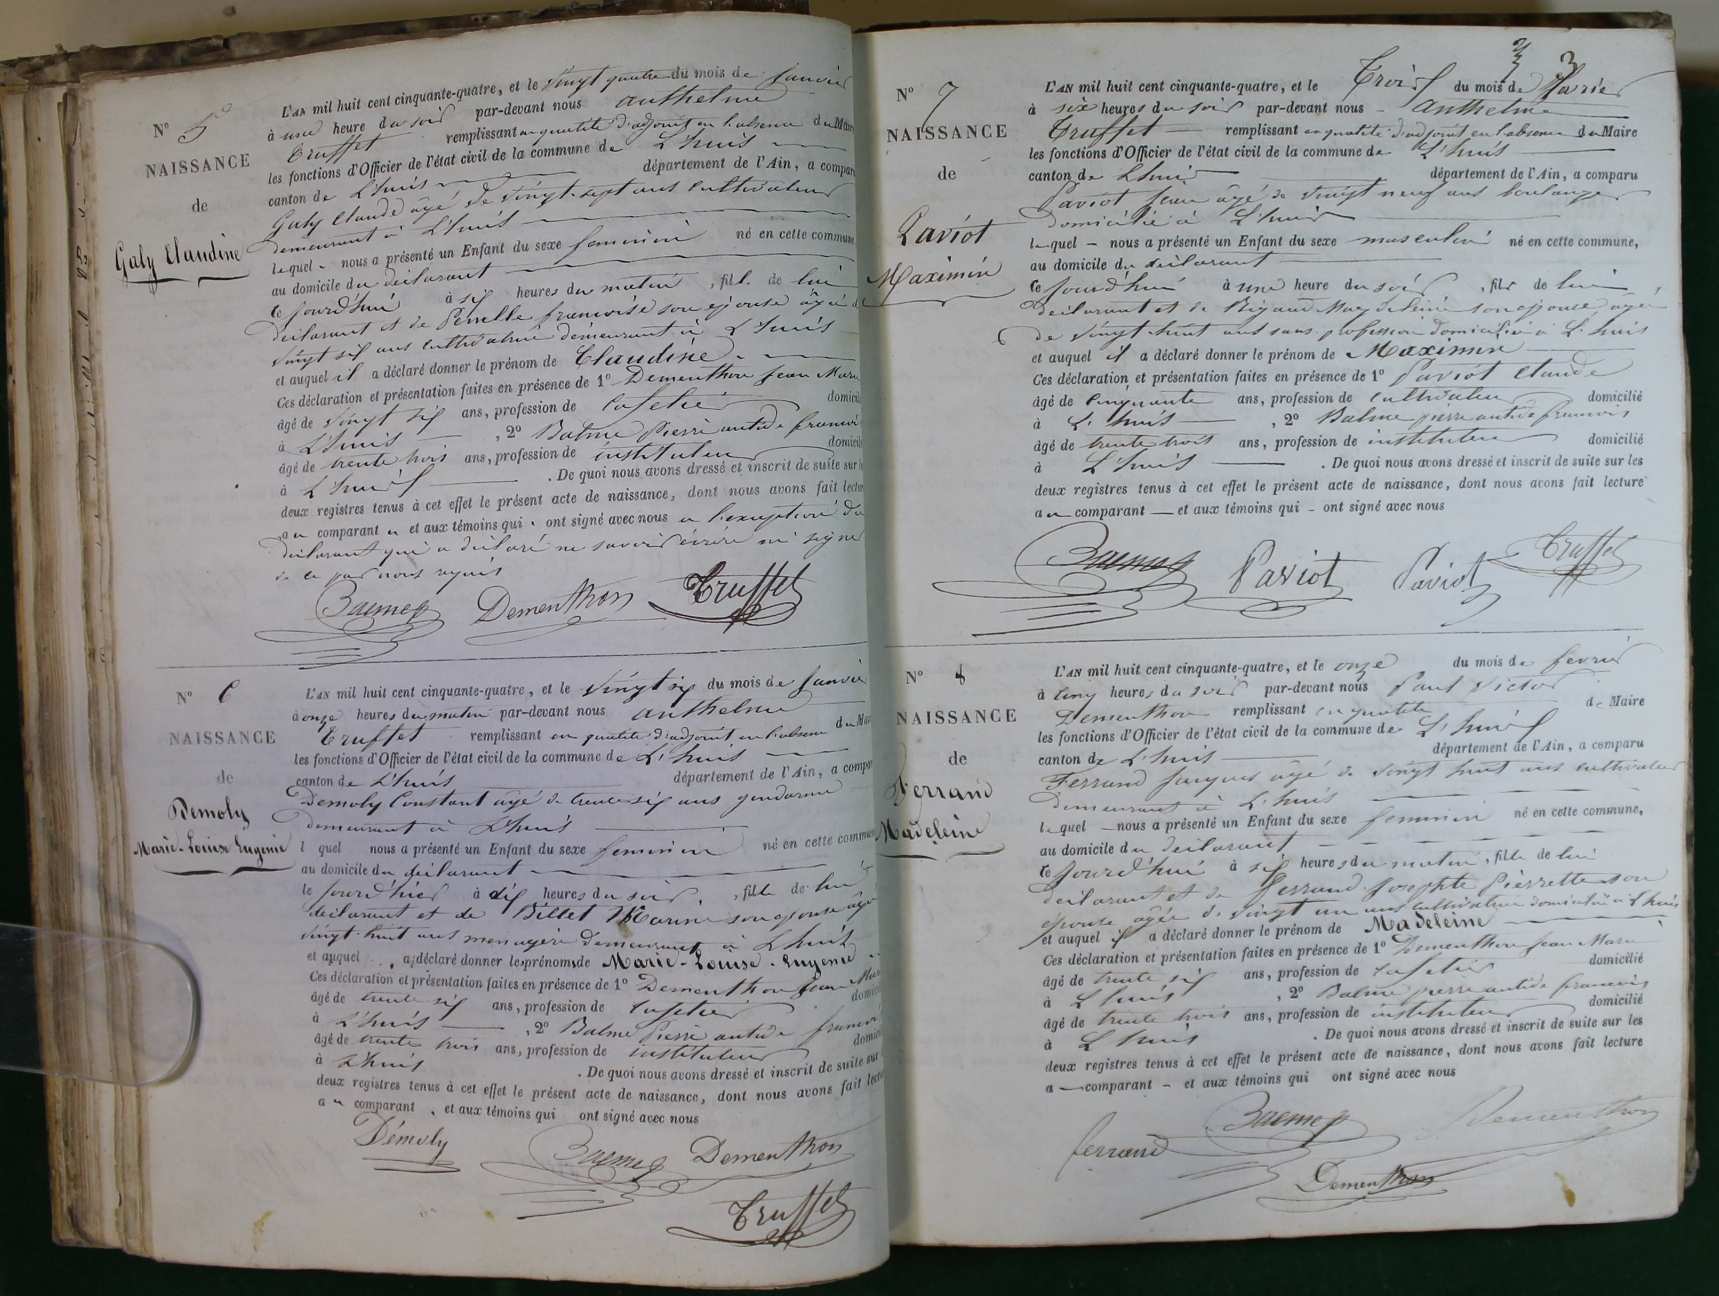 N° 5
NAISSANCE
de
Galy Claudine
L'AN mil huit cent cinquante-quatre, et le vingt quatre du mois de janvier
à une heure du soir par-devant nous anthelme
Truffet remplissant en qualité d'adjoint en l'absence du Maire
les fonctions d'Officier de l'état civil de la commune de L'huis
canton de L'huis département de l'Ain, a comparu
Galy Claude âgé de vingt-sept ans cultivateur
demeurant à L'huis
lequel nous a présenté un Enfant du sexe feminin né en cette commune
au domicile du déclarant
ce jourd'hui à six heures du matin, fille de lui
déclarant et de françoise son épouse âgée de
vingt six ans cultivatrice demeurant à L'huis
et auquel il a déclaré donner le prénom de Claudine
Ces déclaration et présentation faites en présence de 1° Dementhon Jean Marie
âgé de vingt six ans, profession de cafetier domicilié
à L'huis, 2° Balme Pierre antide françois
âgé de trente trois ans, profession de instituteur domicilié
à L'huis. De quoi nous avons dressé et inscrit de suite sur les
deux registres tenus à cet effet le présent acte de naissance, dont nous avons fait lecture
au comparant et aux témoins qui ont signé avec nous a l'exception du
déclarant qui a déclaré ne savoir écrire ni signer
de ce par nous requis
Dementhon Truffet
N° 6
NAISSANCE
de
Demoly
Marie-Louise Eugenie
L'AN mil huit cent cinquante-quatre, et le vingt six du mois de janvier
à onze heures du matin par-devant nous anthelme
Truffet remplissant en qualité d'adjoint en l'absence du Maire
les fonctions d'Officier de l'état civil de la commune de L'huis
canton de L'huis département de l'Ain, a comparu
Demoly Constant âgé de trente six ans gendarme
demeurant à L'huis
l quel nous a présenté un Enfant du sexe feminin né en cette commune
au domicile du déclarant
le jour d'hier à dix heures du soir, fille de lui
déclarant et de Billet Marie son épouse âgée
vingt-huit ans menagère demeurant à L'huis
et auquel a déclaré donner les prénoms de Marie-Louise-Eugenie
Ces déclaration et présentation faites en présence de 1° Dementhon Jean Marie
âgé de trente six ans, profession de cafetier domicilié
à L'huis, 2° Balme Pierre antide françois
âgé de trente trois ans, profession de instituteur domicilié
à L'huis. De quoi nous avons dressé et inscrit de suite sur
deux registres tenus à cet effet le présent acte de naissance, dont nous avons fait lecture
au comparant, et aux témoins qui ont signé avec nous
Démoly Dementhon
Truffet
3
N° 7
NAISSANCE
de
Paviot
Maximin
L'AN mil huit cent cinquante-quatre, et le Trois du mois de février
à six heures du soir par-devant nous Anthelme
Truffet remplissant en qualité d'adjoint en l'absence du Maire
les fonctions d'Officier de l'état civil de la commune de L'huis
canton de L'huis département de l'Ain, a comparu
Paviot Jean âgé de vingt neuf ans boulanger
domicilié à L'huis
lequel nous a présenté un Enfant du sexe masculin né en cette commune,
au domicile du déclarant
ce jourd'hui à une heure du soir, fils de lui
déclarant et de son épouse âgée
de vingt-huit ans sans profession domiciliée à L'huis
et auquel il a déclaré donner le prénom de Maximin
Ces déclaration et présentation faites en présence de 1° Paviot Claude
âgé de cinquante ans, profession de cultivateur domicilié
à L'huis, 2° Balme pierre antide francois
âgé de trente trois ans, profession de instituteur domicilié
à L'huis. De quoi nous avons dressé et inscrit de suite sur les
deux registres tenus à cet effet le présent acte de naissance, dont nous avons fait lecture
au comparant et aux témoins qui ont signé avec nous
Paviot Paviot Truffet
N° 8
NAISSANCE
de
Ferrand
Madeleine
L'AN mil huit cent cinquante-quatre, et le onze du mois de fevrier
à cinq heures du soir par-devant nous Paul Victor
Dementhon remplissant en qualité de Maire
les fonctions d'Officier de l'état civil de la commune de L'huis
canton de L'huis département de l'Ain, a comparu
Ferrand Jacques âgé de vingt huit ans cultivateur
demeurant à L'huis
lequel nous a présenté un Enfant du sexe feminin né en cette commune,
au domicile du déclarant
ce jourd'hui à six heures du matin, fille de lui
déclarant et de Ferrand Josephte Pierrette son
épouse âgée de vingt un ans cultivatrice domiciliée à L'huis
et auquel il a déclaré donner le prénom de Madeleine
Ces déclaration et présentation faites en présence de 1° Dementhon Jean Marie
âgé de trente six ans, profession de cafetier domicilié
à L'huis, 2° Balme pierre antide francois
âgé de trente trois ans, profession de instituteur domicilié
à L'huis. De quoi nous avons dressé et inscrit de suite sur les
deux registres tenus à cet effet le présent acte de naissance, dont nous avons fait lecture
a comparant et aux témoins qui ont signé avec nous
ferrand Dementhon
Dementhon